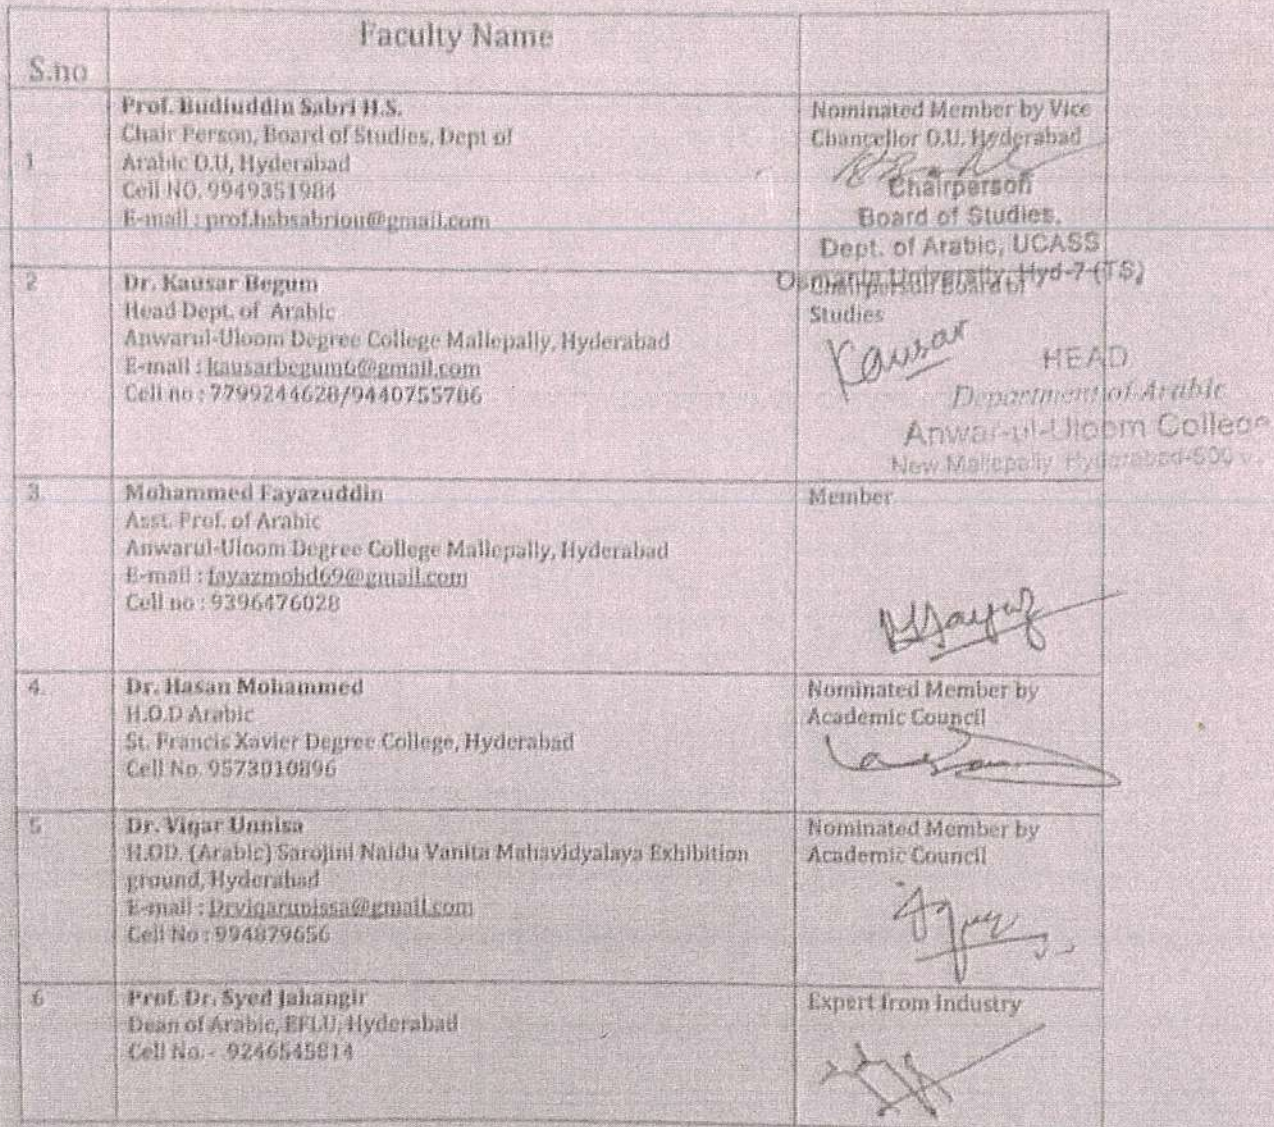 Faculty Name
S.no
1
Prof. Budiuddin Sabri H.S.
Chair Person, Board of Studies, Dept of
Arabic O.U, Hyderabad
Cell NO. 9949351984
E-mail : prof.hsbsabriou@gmail.com
Nominated Member by Vice
Chancellor O.U. Hyderabad
Chairperson
Board of Studies,
Dept. of Arabic, UCASS
Osmania University, Hyd-7 (TS)
2
Dr. Kausar Begum
Head Dept. of Arabic
Anwarul-Uloom Degree College Mallepally, Hyderabad
E-mail : kausarbegum6@gmail.com
Cell no : 7799244628/9440755786
Chairperson Board of
Studies
Kausar
HEAD
Department of Arabic
Anwar-ul-Uloom College
New Mallepally, Hyderabad-500
3.
Mohammed Fayazuddin
Asst. Prof. of Arabic
Anwarul-Uloom Degree College Mallepally, Hyderabad
E-mail : fayazmohd69@gmail.com
Cell no : 9396476028
Member
4.
Dr. Hasan Mohammed
H.O.D Arabic
St. Francis Xavier Degree College, Hyderabad
Cell No. 9573010896
Nominated Member by
Academic Council
5
Dr. Viqar Unnisa
H.OD. (Arabic) Sarojini Naidu Vanita Mahavidyalaya Exhibition
ground, Hyderabad
E-mail : Drviqarunissa@gmail.com
Cell No : 994879656
Nominated Member by
Academic Council
6
Prof. Dr. Syed Jahangir
Dean of Arabic, EFLU, Hyderabad
Cell No.- 9246545814
Expert from Industry